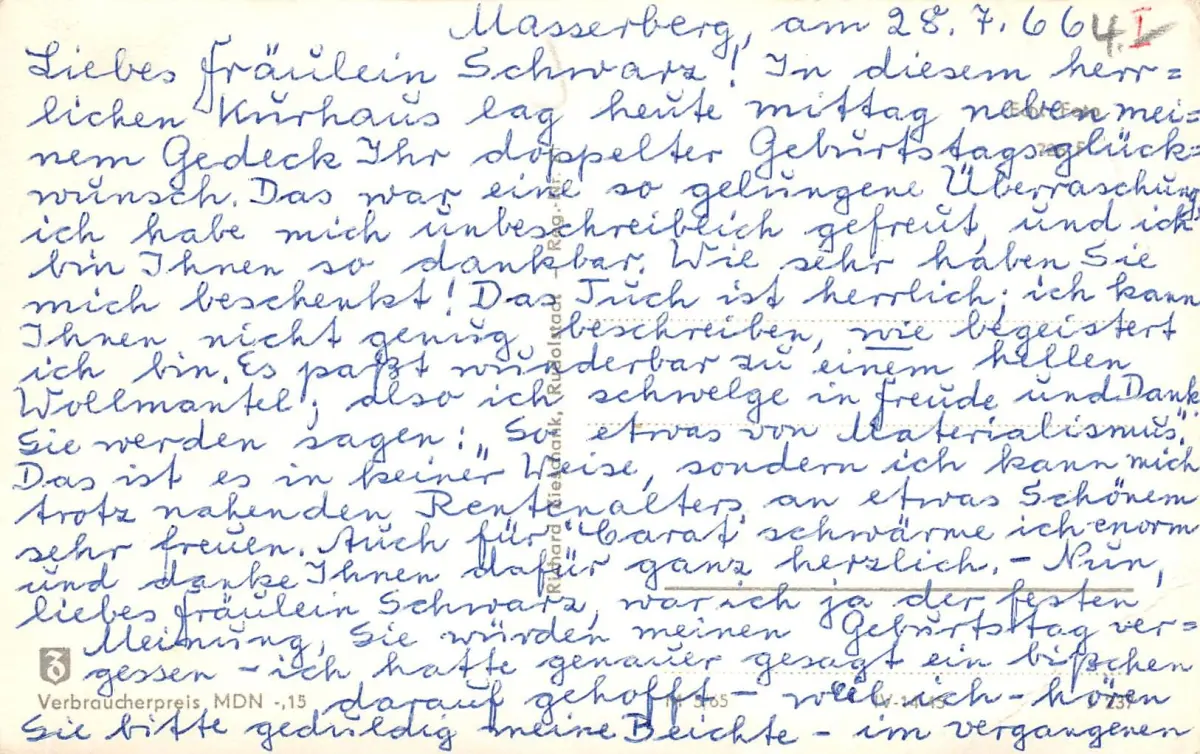 Masserberg, am 28.7.66 4. I
Liebes Fräulein Schwarz! In diesem herr=
lichen Kurhaus lag heute mittag neben mei=
nem Gedeck Ihr doppelter Geburtstagsglück=
wunsch. Das war eine so gelungene Überraschung,
ich habe mich unbeschreiblich gefreut, und ich
bin Ihnen so dankbar. Wie sehr haben Sie
mich beschenkt! Das Tuch ist herrlich; ich kann
Ihnen nicht genug beschreiben, wie begeistert
ich bin. Es paßt wunderbar zu einem hellen
Wollmantel; also ich schwelge in Freude und Dank
Sie werden sagen: „So etwas von Materialismus“.
Das ist es in keiner Weise, sondern ich kann mich
trotz nahenden Rentenalters an etwas Schönem
sehr freuen. Auch für "Carat" schwärme ich enorm
und danke Ihnen dafür ganz herzlich. – Nun,
liebes Fräulein Schwarz, war ich ja der festen
Meinung, Sie würden meinen Geburtstag ver=
gessen – ich hatte genauer gesagt ein bißchen
darauf gehofft – weil ich – hören
Sie bitte geduldig meine Beichte – im vergangenen
Verbraucherpreis MDN -,15
Richard Zieschank, Rudolstadt